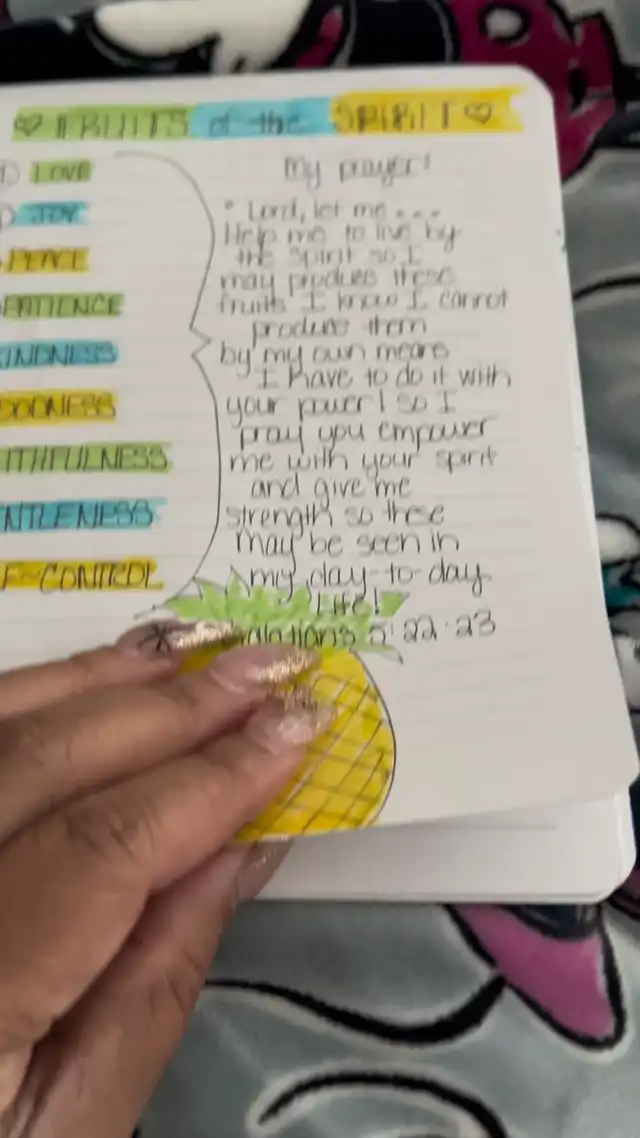 ♡ FRUITS of the SPIRIT ♡
1) LOVE
) JOY
PEACE
PATIENCE
INDNESS
OODNESS
ITHFULNESS
NTLENESS
F-CONTROL
My prayer!
* Lord, let me...
Help me to live by
the Spirit so I
may produce these
fruits I know I cannot
produce them
by my own means
I have to do it with
your power! so I
pray you empower
me with your spirit
and give me
strength so these
may be seen in
my day-to-day
Life!
* alations 5:22-23